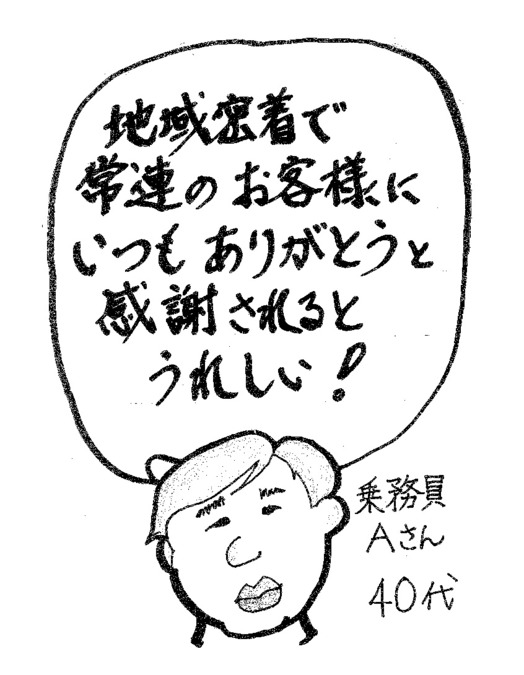 地域密着で
常連のお客様に
いつもありがとうと
感謝されると
うれしい！
乗務員
Aさん
40代